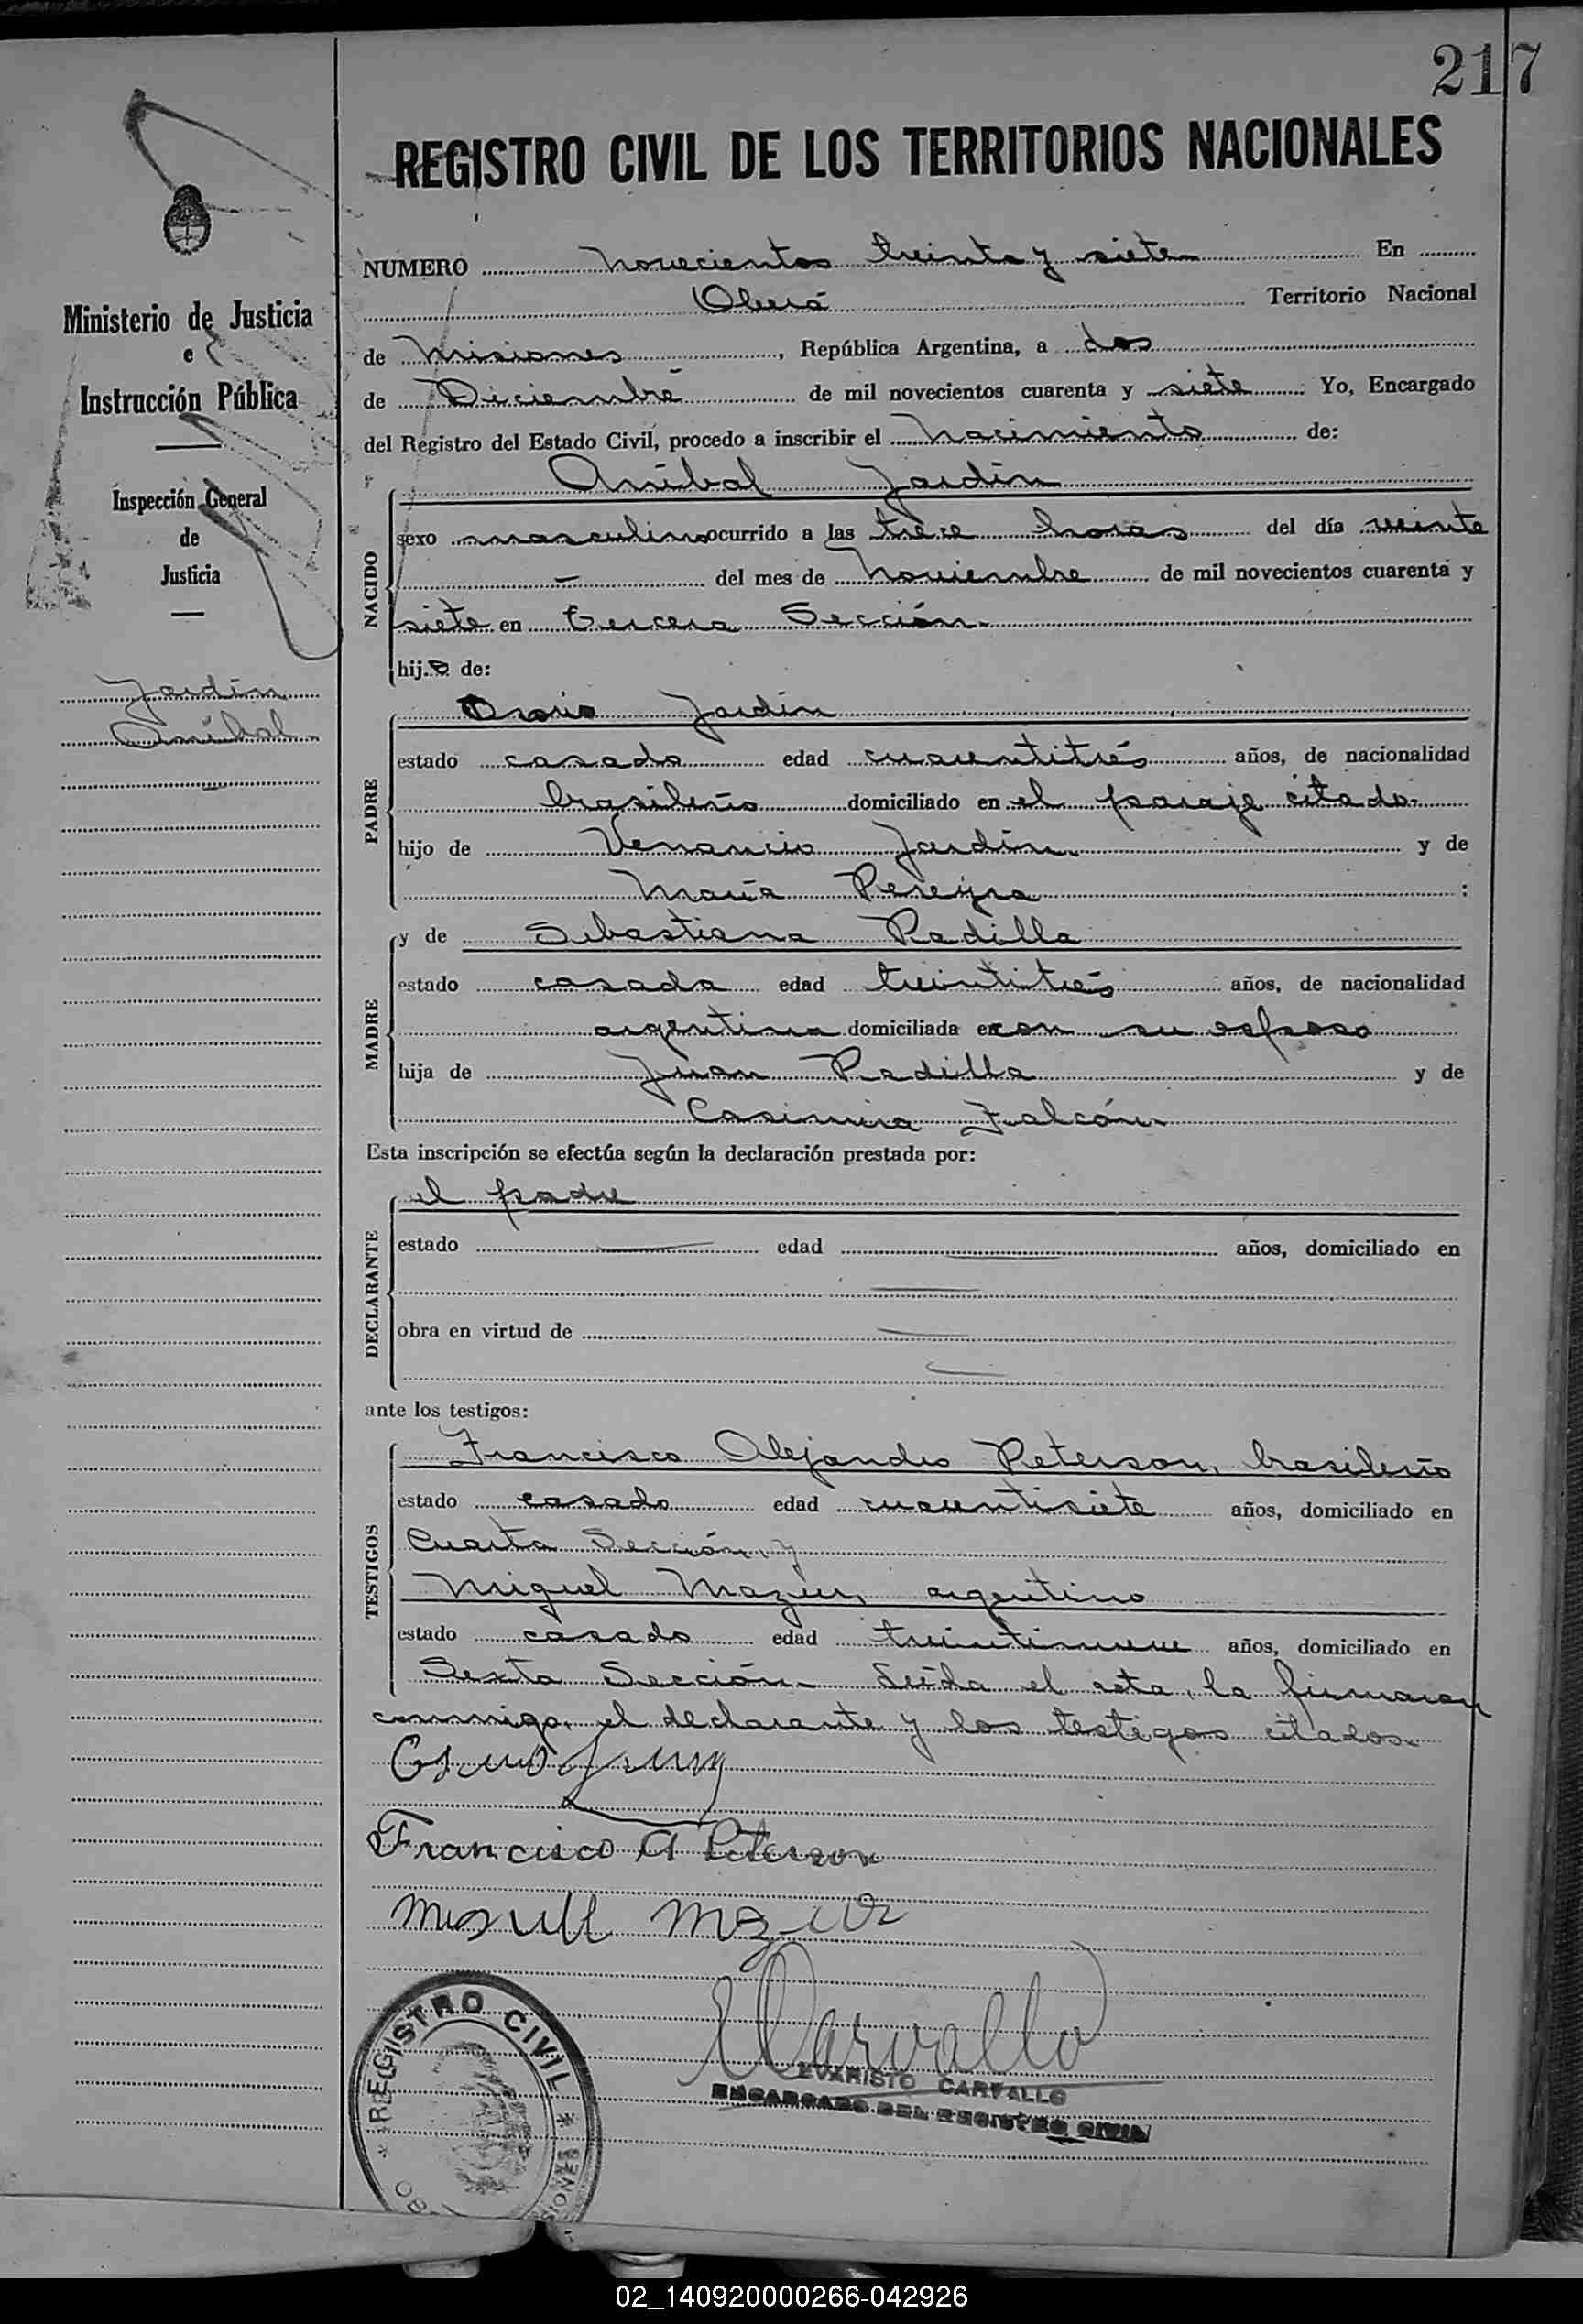 217
REGISTRO CIVIL DE LOS TERRITORIOS NACIONALES
Ministerio de Justicia
e
Instrucción Pública
Inspección General
de
Justicia
Jardín
Aníbal
NUMERO novecientos treinta y siete En
Oberá Territorio Nacional
de Misiones, República Argentina, a dos
de Diciembre de mil novecientos cuarenta y siete Yo, Encargado
del Registro del Estado Civil, procedo a inscribir el nacimiento de:
Aníbal Jardín
NACIDO
sexo masculino ocurrido a las trece horas del día veinte
— del mes de noviembre de mil novecientos cuarenta y
siete en tercera Sección.
hijo de:
PADRE
Osorio Jardín
estado casado edad cuarentitrés años, de nacionalidad
brasileño domiciliado en el paraje citado.
hijo de Venancio Jardín y de
María Pereyra :
MADRE
y de Sebastiana Padilla
estado casada edad treintitrés años, de nacionalidad
argentina domiciliada con su esposo
hija de Juan Padilla y de
Casimira Falcón
Esta inscripción se efectúa según la declaración prestada por:
DECLARANTE
el padre
estado — edad — años, domiciliado en
—
obra en virtud de —
—
ante los testigos:
TESTIGOS
Francisco Alejandro Peterson, brasileño
estado casado edad cuarentisiete años, domiciliado en
Cuarta Sección, y
Miguel Mazur, argentino
estado casado edad treintinueve años, domiciliado en
Sexta Sección. Leída el acta, la firmaron
conmigo, el declarante y los testigos citados.
Francisco A Peterson
Miguel Mazur
ECarvallo
EVARISTO CARVALLO
ENCARGADO DEL REGISTRO CIVIL
* REGISTRO CIVIL *
02_140920000266-042926